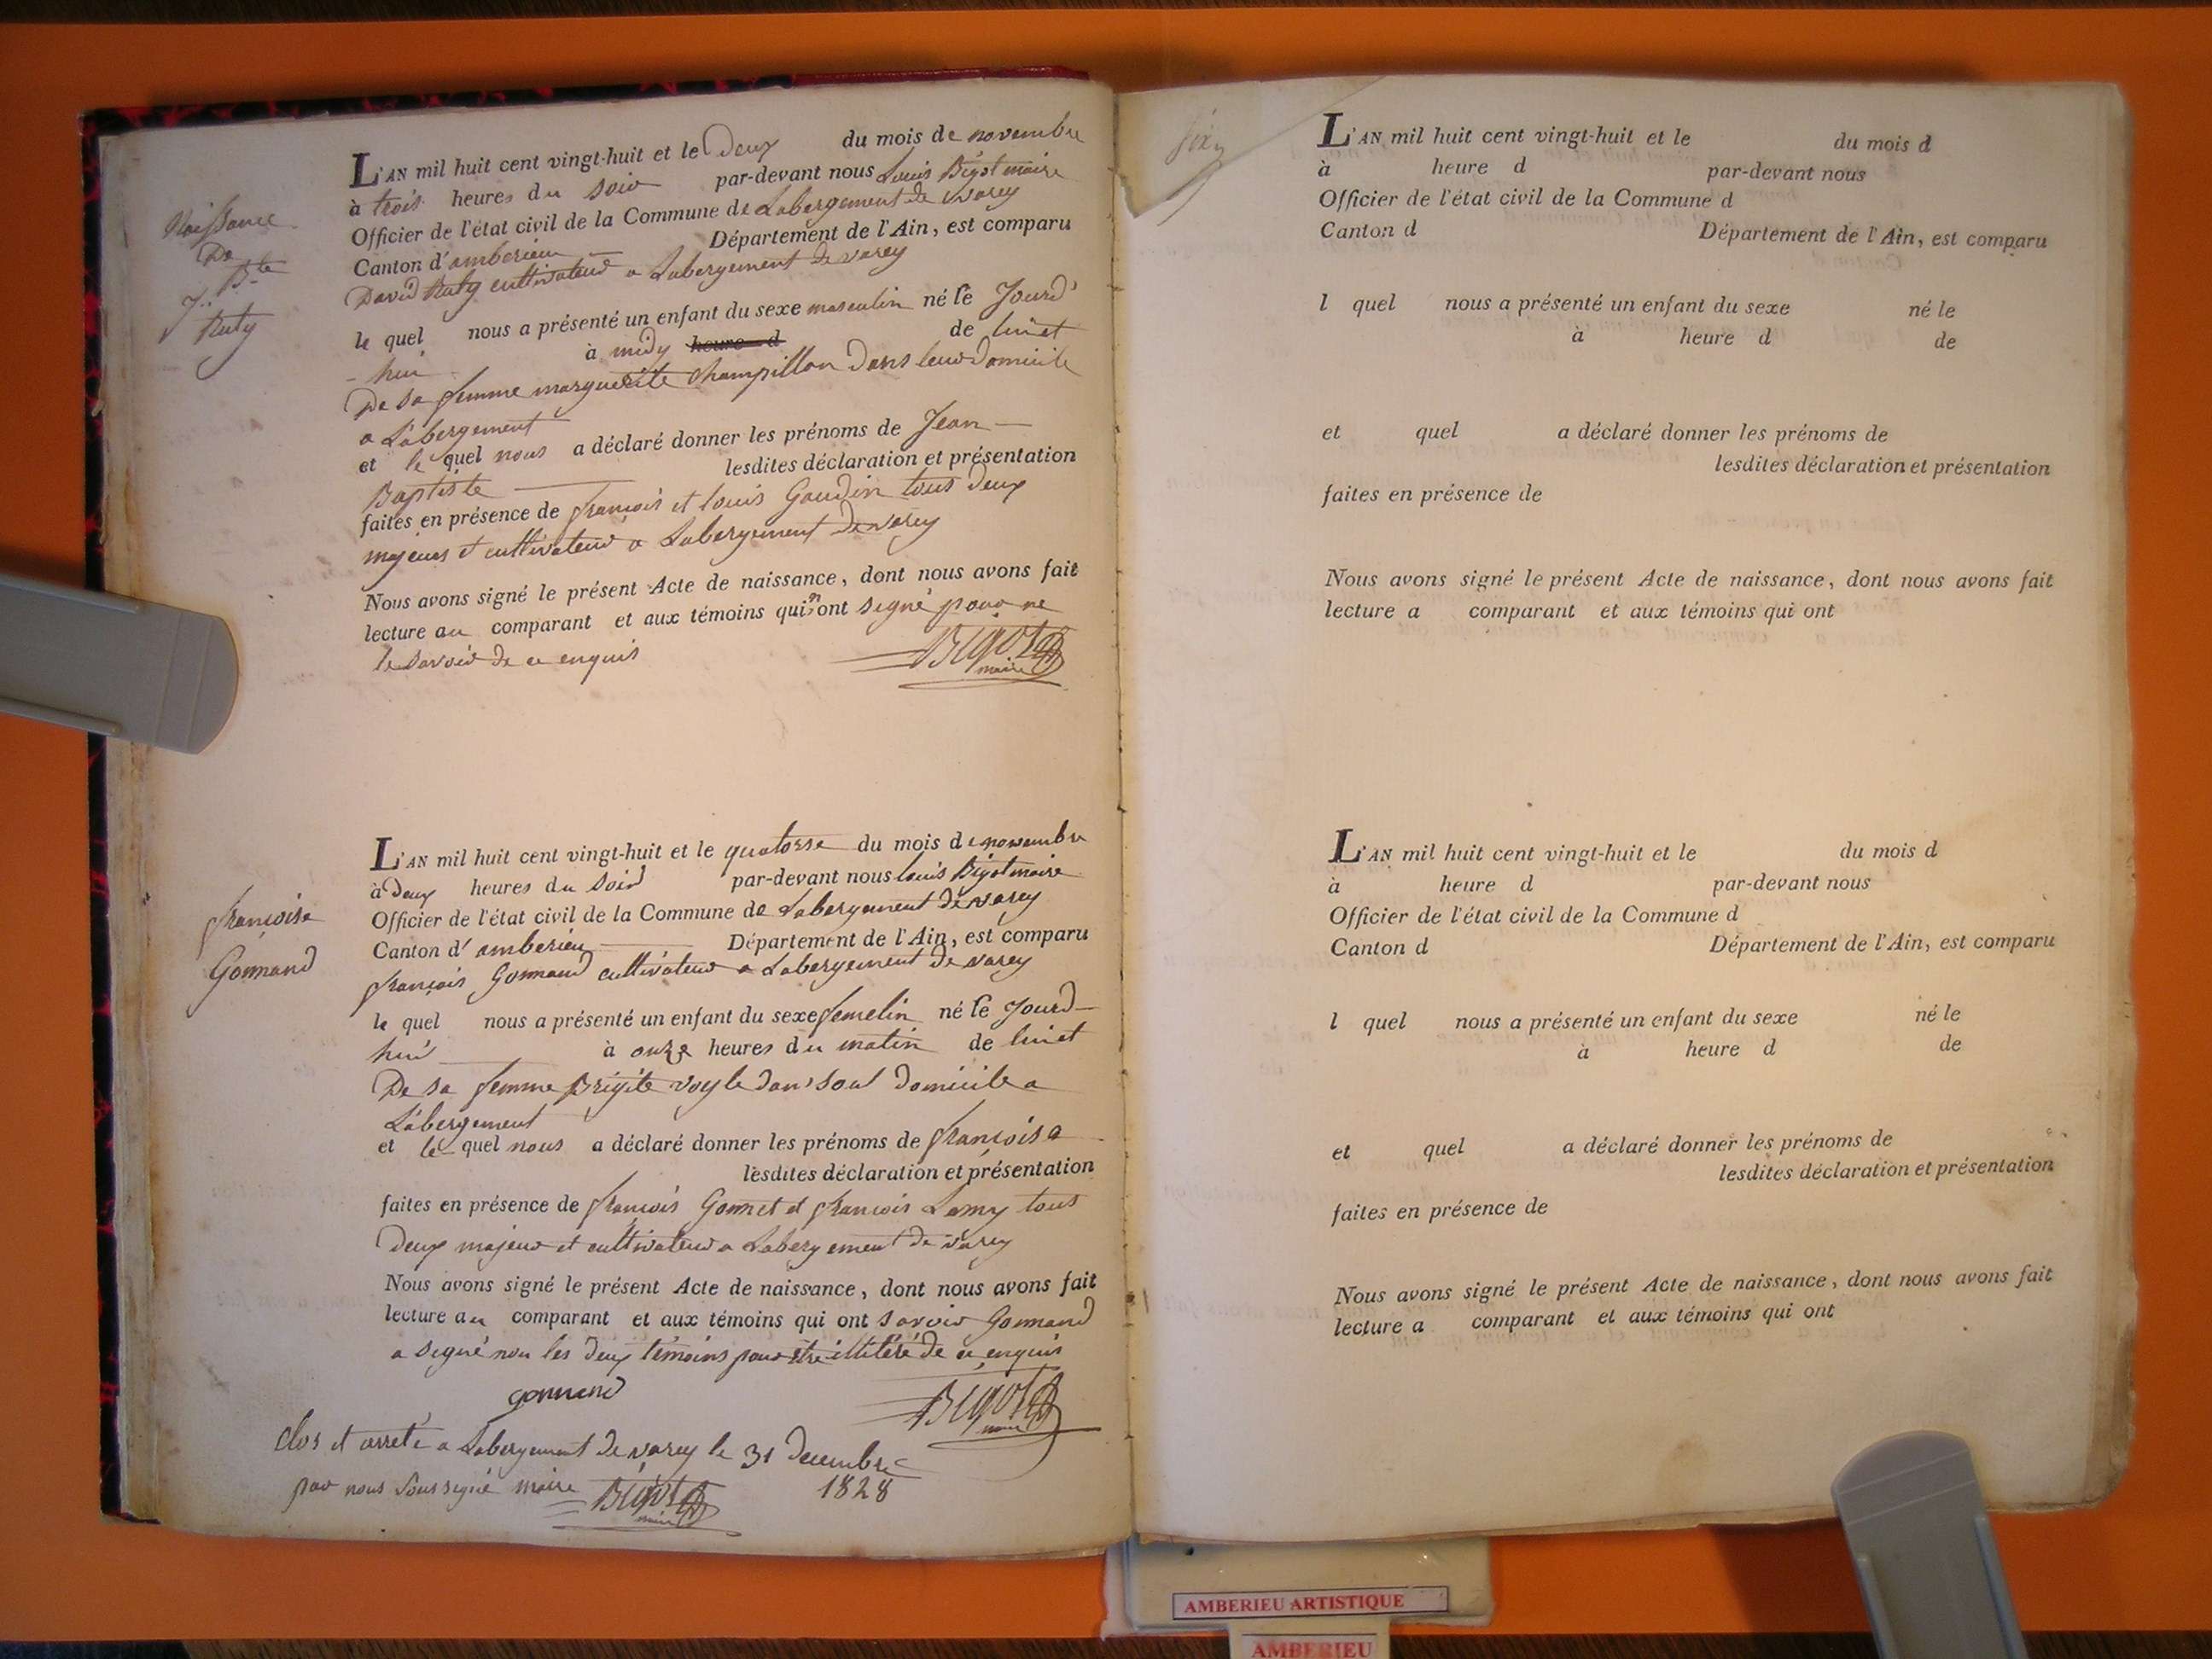 Naissance
De
J.n B.te
Ruty
L'AN mil huit cent vingt-huit et le Deux du mois de novembre
à trois heures du soir par-devant nous Louis Bigot maire
Officier de l'état civil de la Commune de Labergement de varey
Canton d'amberieu Département de l'Ain, est comparu
David Ruty cultivateur a Labergement de varey
le quel nous a présenté un enfant du sexe masculin né le Jourd'
-hui à midy heure d de lui et
De sa femme marguerite Champillon Dans leur Domicile
a Labergement
et le quel nous a déclaré donner les prénoms de Jean
Baptiste lesdites déclaration et présentation
faites en présence de françois et louis Gaudin tous Deux
majeurs et cultivateur a Labergement De varey
Nous avons signé le présent Acte de naissance, dont nous avons fait
lecture au comparant et aux témoins qui n'ont signé pour ne
le savoir de ce enquis
Bigot
maire
françoise
Gonnand
L'AN mil huit cent vingt-huit et le quatorse du mois de novembre
à Deux heures du soir par-devant nous louis Bigot maire
Officier de l'état civil de la Commune de Labergement de varey
Canton d'amberieu Département de l'Ain, est comparu
françois Gonnand cultivateur a Labergement de varey
le quel nous a présenté un enfant du sexe femelin né le Jourd-
hui à onze heures du matin de lui et
De sa femme Brigite voyle dans son Domicile a
Labergement
et le quel nous a déclaré donner les prénoms de françoise
lesdites déclaration et présentation
faites en présence de françois Gonnet et françois Lamy tous
Deux majeur et cultivateur a Labergement de varey
Nous avons signé le présent Acte de naissance, dont nous avons fait
lecture au comparant et aux témoins qui ont savoir Gonnand
a signé non les Deux témoins pour etre illitéré de ce enquis
gonnand
Bigot
maire
Clos et arreté a Labergement de varey le 31 Decembre
1828
par nous soussigné maire Bigot
maire
six
L'AN mil huit cent vingt-huit et le du mois d
à heure d par-devant nous
Officier de l'état civil de la Commune d
Canton d Département de l'Ain, est comparu
l quel nous a présenté un enfant du sexe né le
à heure d de
et quel a déclaré donner les prénoms de
lesdites déclaration et présentation
faites en présence de
Nous avons signé le présent Acte de naissance, dont nous avons fait
lecture a comparant et aux témoins qui ont
L'AN mil huit cent vingt-huit et le du mois d
à heure d par-devant nous
Officier de l'état civil de la Commune d
Canton d Département de l'Ain, est comparu
l quel nous a présenté un enfant du sexe né le
à heure d de
et quel a déclaré donner les prénoms de
lesdites déclaration et présentation
faites en présence de
Nous avons signé le présent Acte de naissance, dont nous avons fait
lecture a comparant et aux témoins qui ont
AMBERIEU ARTISTIQUE
AMBERIEU